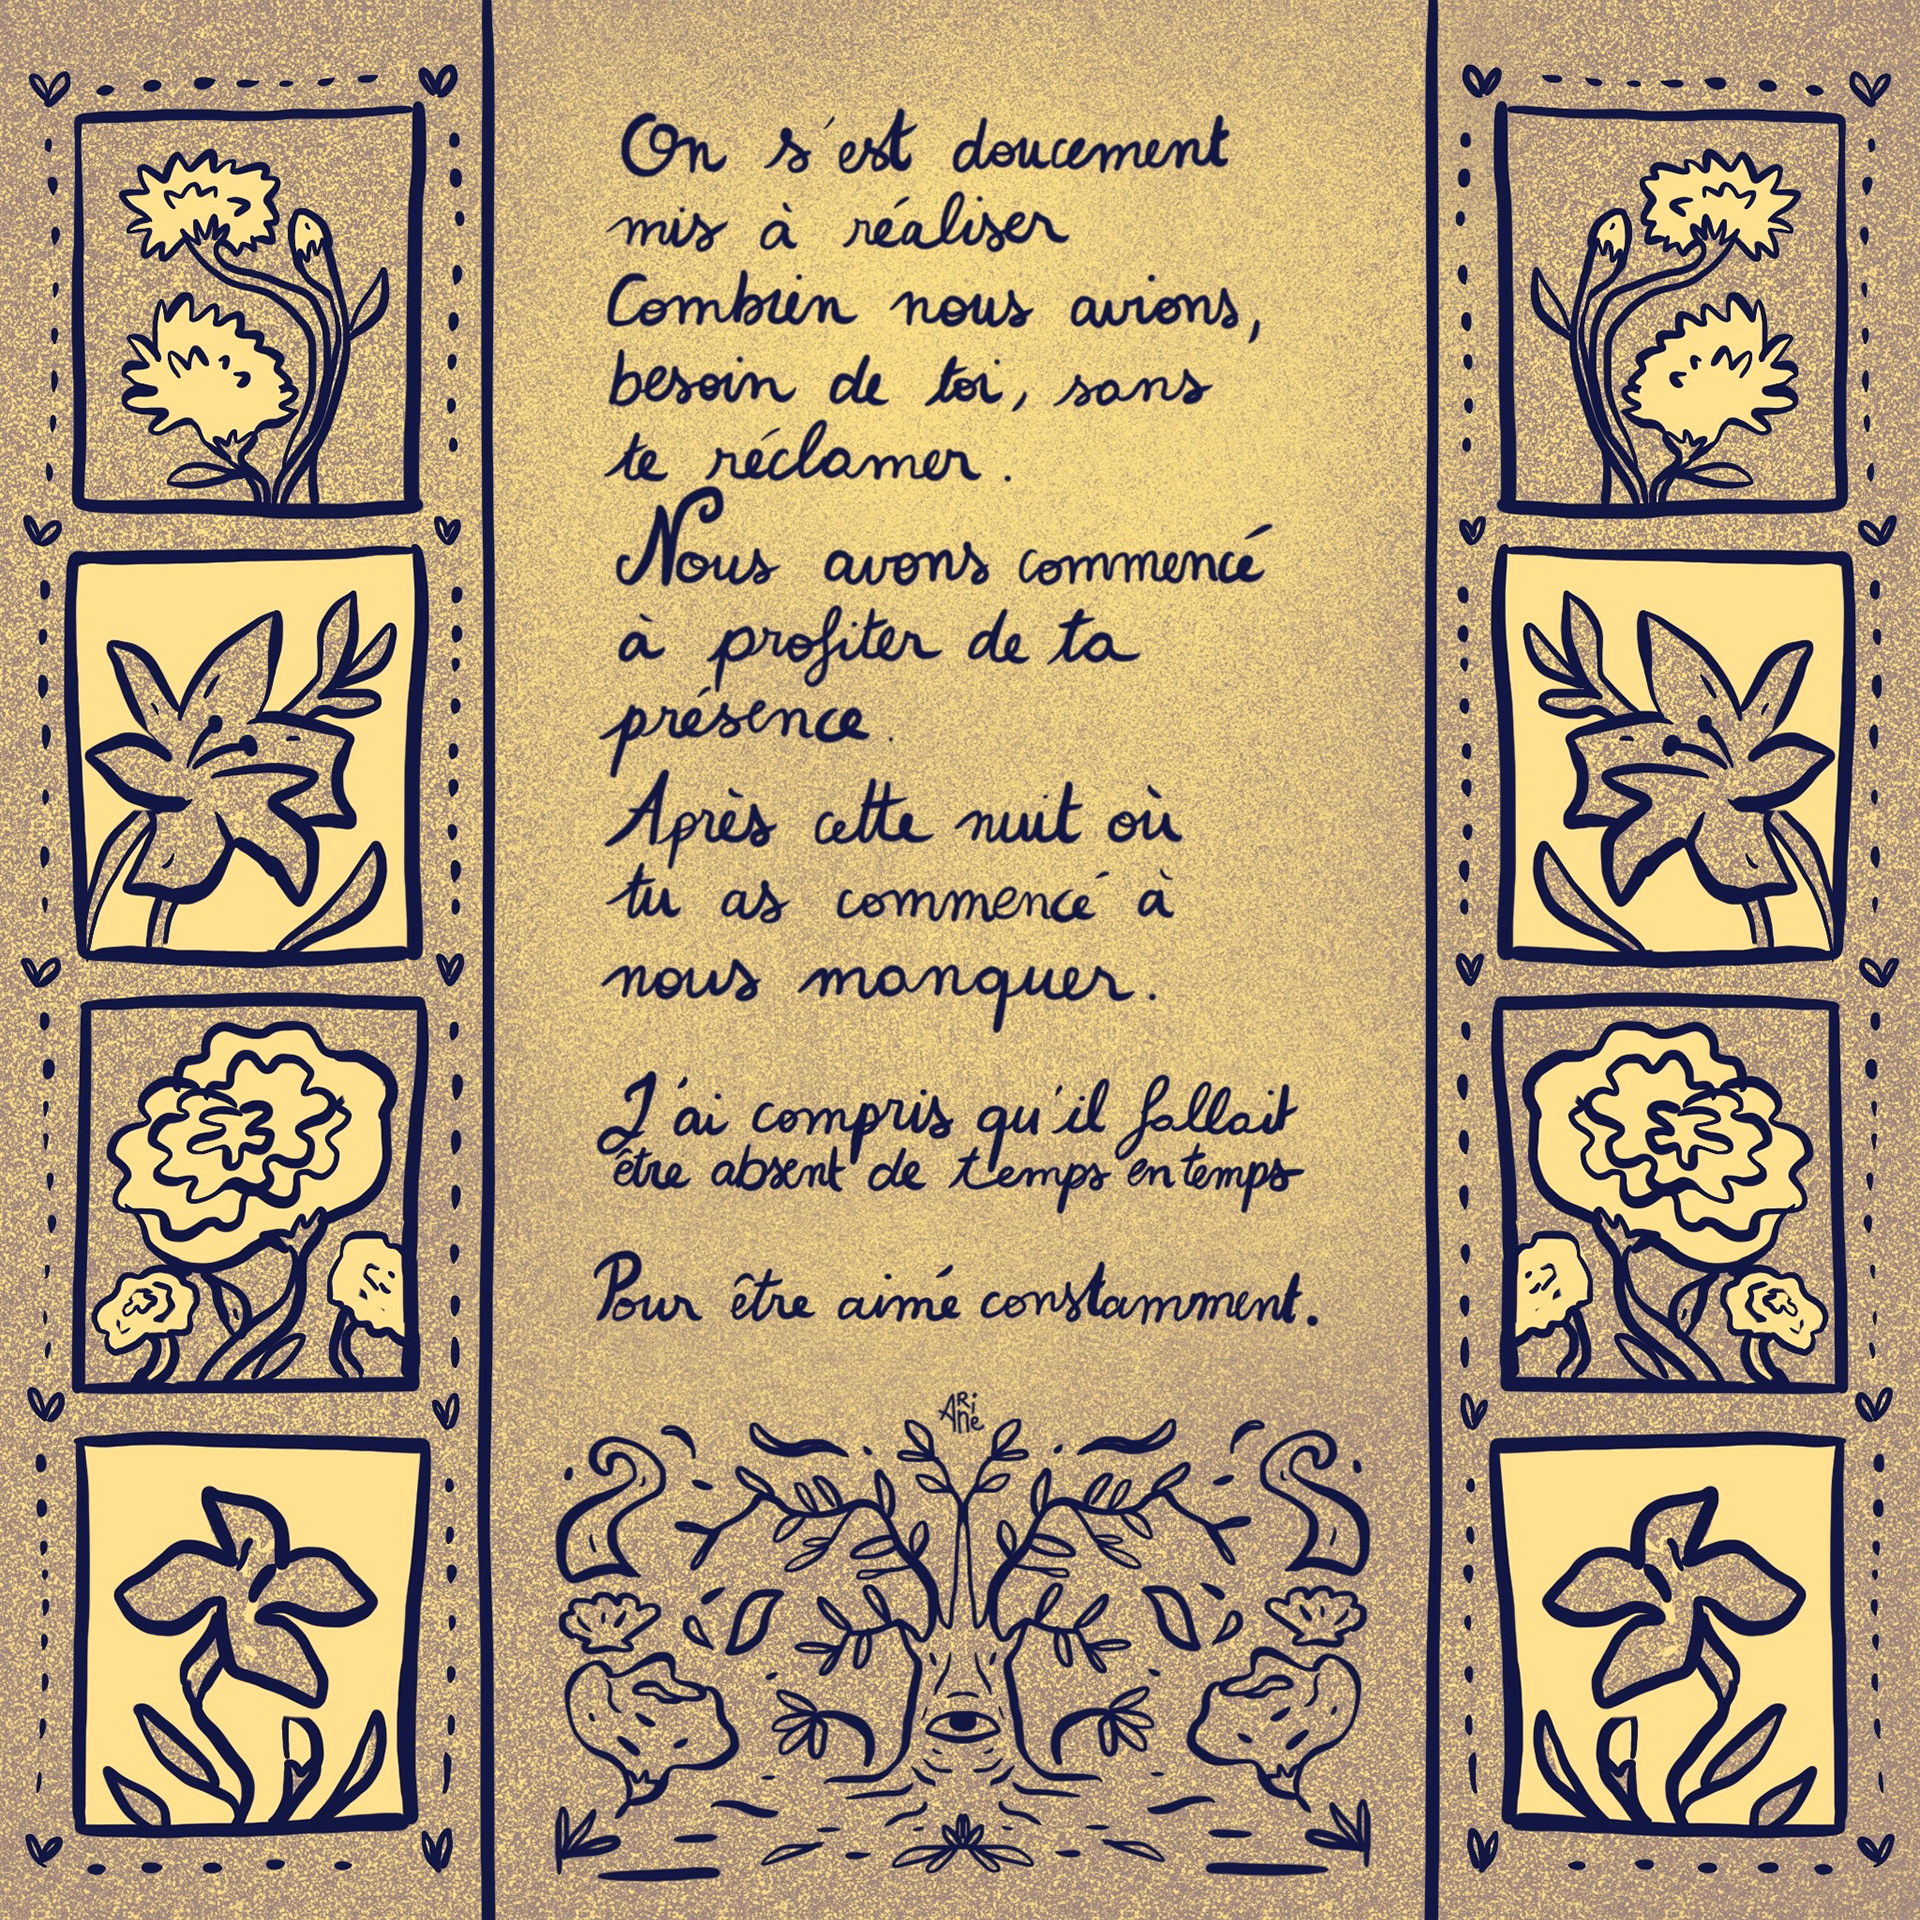 On s'est doucement
mis à réaliser
Combien nous avions,
besoin de toi, sans
te réclamer.
Nous avons commencé
à profiter de ta
présence.
Après cette nuit où
tu as commencé à
nous manquer.
J'ai compris qu'il fallait
être absent de temps en temps
Pour être aimé constamment.
ARinE